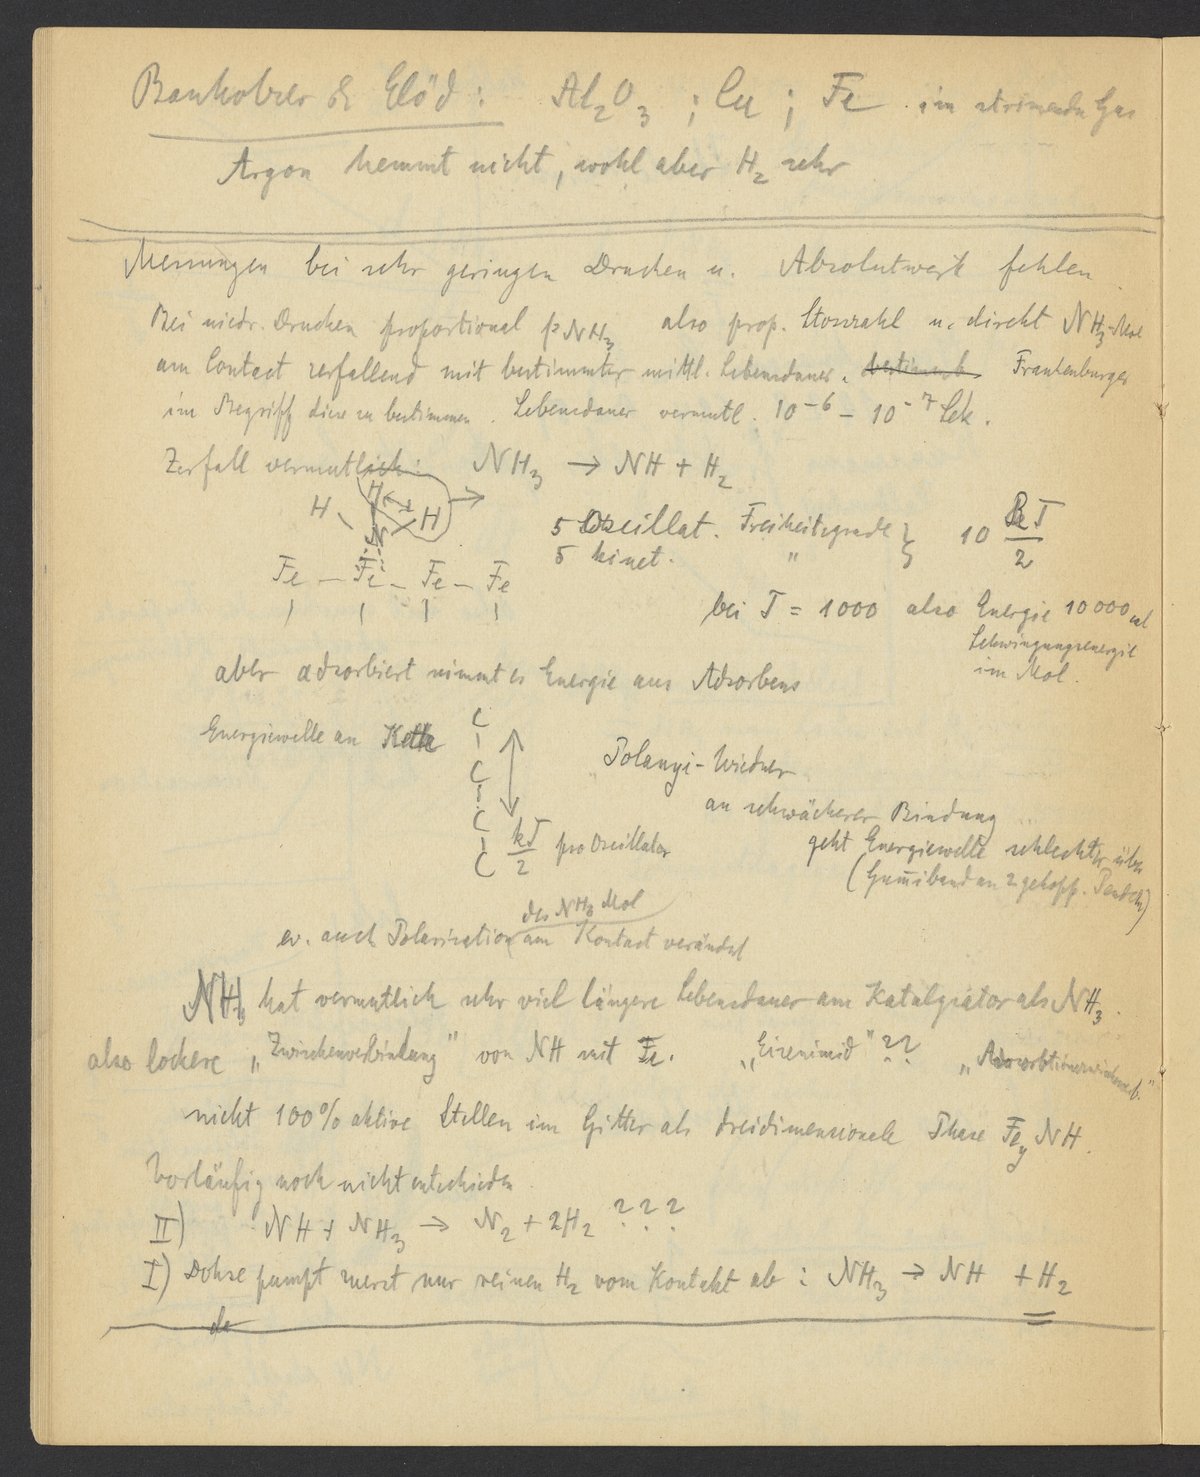 Banholzer & Elöd: Al₂O₃ ; Cu ; Fe im strömenden Gas
Argon hemmt nicht, wohl aber H₂ sehr
Messungen bei sehr geringen Drucken u. Absolutwerte fehlen
Bei niedr. Drucken proportional pNH₃ also prop. Stosszahl u. direkt NH₃-Mol
am Contact zerfallend mit bestimmter mittl. Lebensdauer. Frankenburger
im Begriff diese zu bestimmen. Lebensdauer vermutl. 10⁻⁶ – 10⁻⁷ Sek.
Zerfall vermutlich: NH₃ → NH + H₂
H H H →
N
Fe – Fe – Fe – Fe
5 Oscillat. Freiheitsgrade } 10 RT/2
5 kinet. "
bei T = 1000 also Energie 10000 cal
Schwingungsenergie
im Mol.
aber adsorbiert nimmt es Energie aus Adsorbens
Energiewelle an Kette
C
C
C
C
kT/2 pro Oscillator
Polanyi-Wigner
an schwächerer Bindung
geht Energiewelle schlechter über
(Gum̄iband an 2 gekopp. Pendeln)
des NH₃ Mol
ev. auch Polarisation am Kontact verändert
NH hat vermutlich sehr viel längere Lebensdauer am Katalysator als NH₃.
also lockere „Zwischenverbindung" von NH mit Fe. „Eisenimid" ?? „Adsorbtionszwischenverb."
nicht 100% aktive Stellen im Gitter als dreidimensionale Phase FeyNH.
Vorläufig noch nicht entschieden
II) NH + NH₃ → N₂ + 2H₂ ???
I) Dohse pumpt zuerst nur reinen H₂ vom Kontakt ab : NH₃ → NH + H₂
de